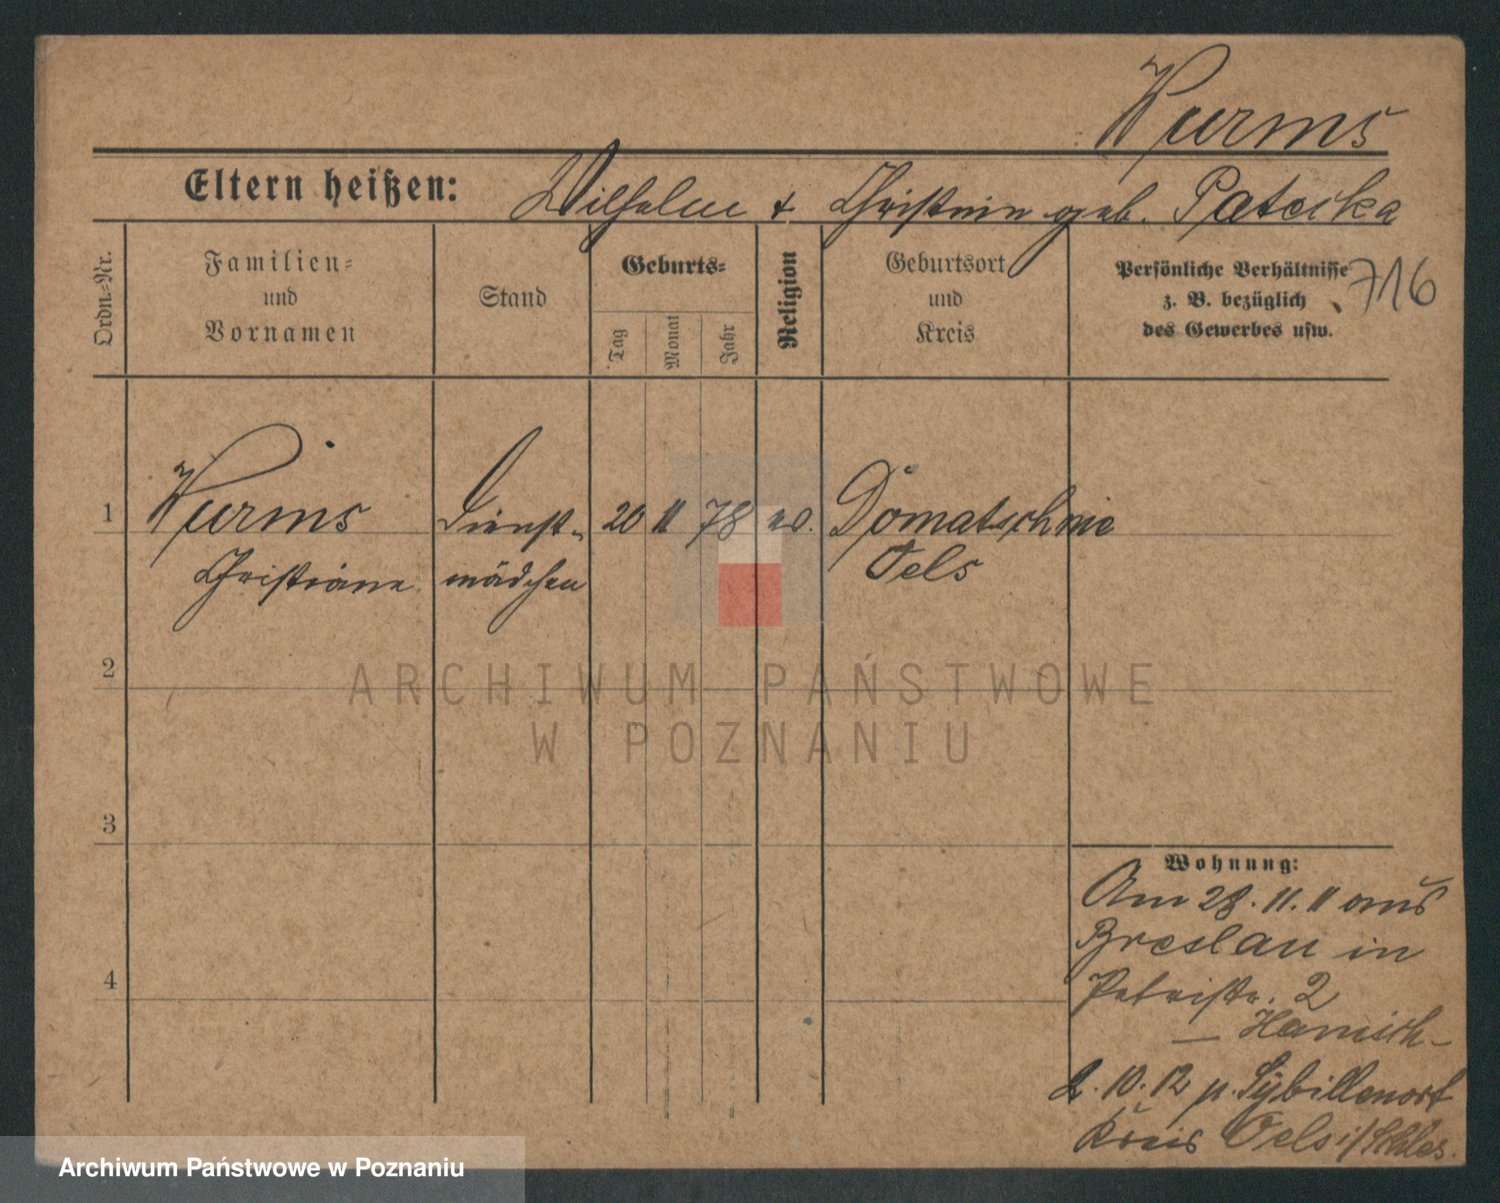 Wurms
Eltern heißen: Wilhelm + Christine geb. Pateika
Ordn.-Nr.
Familien-
und
Vornamen
Stand
Geburts-
Tag
Monat
Jahr
Religion
Geburtsort
und
Kreis
Persönliche Verhältnisse
z. B. bezüglich
des Gewerbes usw.
716
1 Wurms Dienst- 20 11 78 ev. Domatschine
Christiane mädchen Oels
2
3
4
Wohnung:
Am 28.11.11 aus
Breslau in
Petristr. 2
– Hanisch –
2.10.12 n. Sybillenort
Kreis Oels i/Schles.
ARCHIWUM PAŃSTWOWE
W POZNANIU
Archiwum Państwowe w Poznaniu